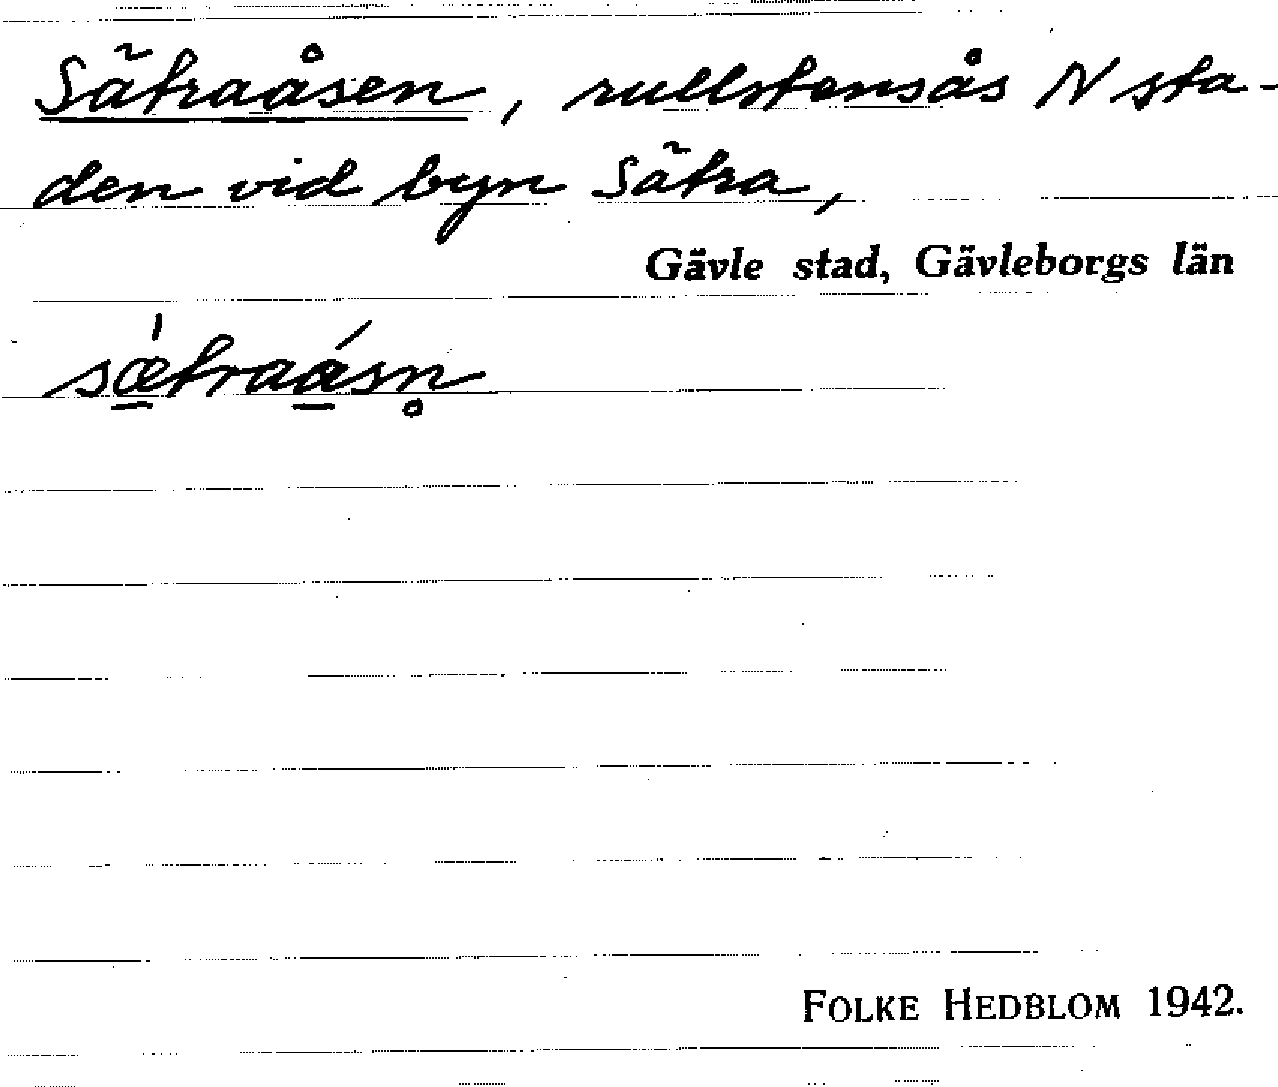 Sätraåsen, rullstensås N sta-
den vid byn Sätra,
Gävle stad, Gävleborgs län
sǽ̱traá̱sn̥
FOLKE HEDBLOM 1942.